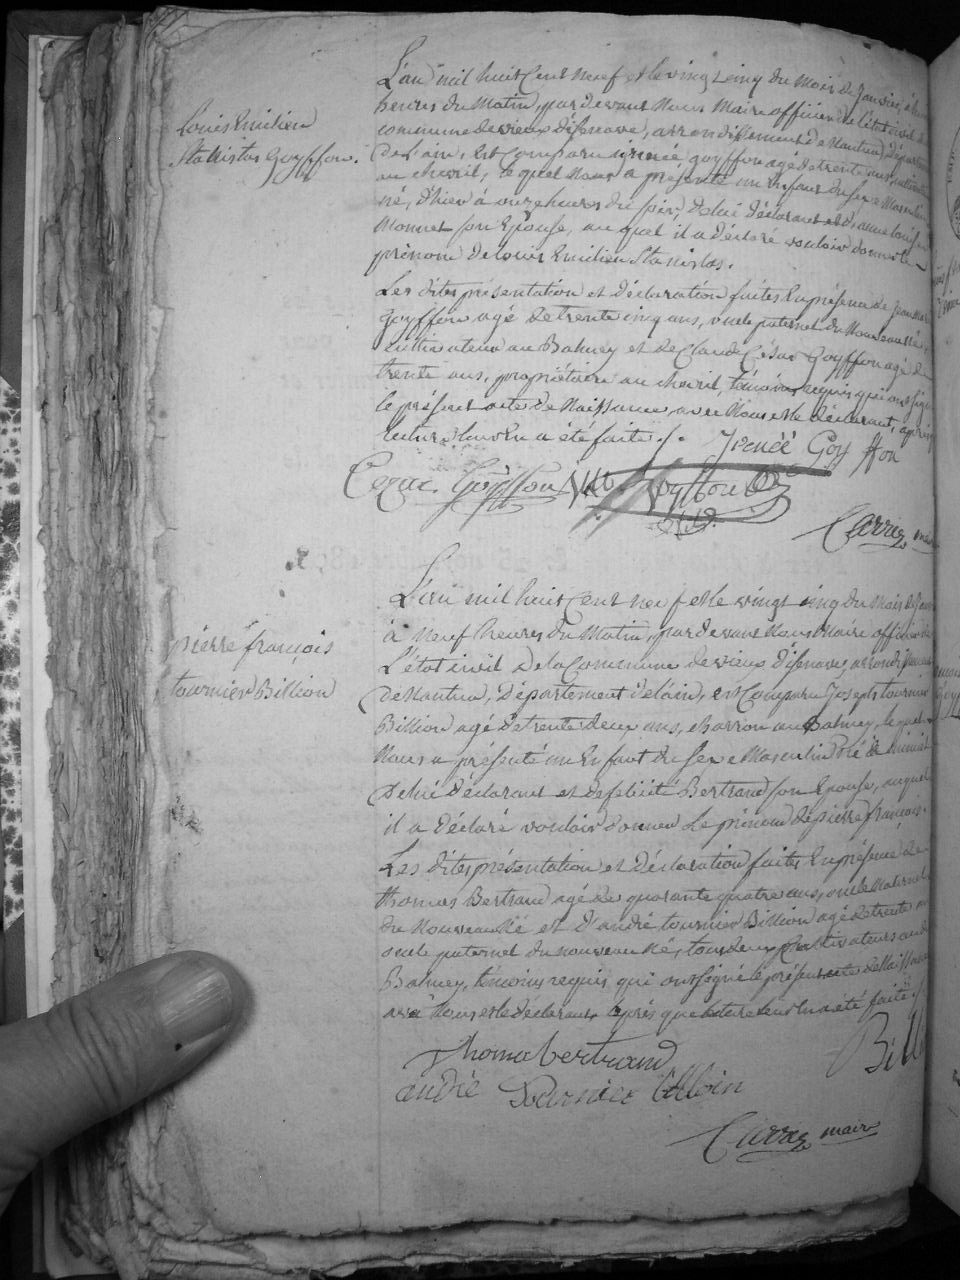 Louis Emilien
Stanislas Goyffon.
L'an mil huit Cent neuf et le vingt cinq du Mois de Janvier, à
heures du Matin, par devant Nous Maire officier de l'état civil de
commune de vieux d'isenave, arrondissement de Nantua, Départ
De L'ain, est Comparu irénée goyffon agé de trente
au chevril, lequel Nous a présenté un Enfant du Sexe Masculin
né, d'hier à onze heures du soir, de lui déclarant et d'anne Louise
Monnet son Epouse, au quel il a déclaré vouloir donner le
prénom De Louis Emilien Stanislas.
Les dites présentation et déclaration faites En présence de Jean
Goyffon agé de trente cinq ans, oncle paternel du Nouveau Né,
cultivateur au Balmey et de Claude César Goyffon agé de
trente ans, propriétaire au chevril, témoins requis qui ont signé
le présent acte de Naissance, avec Nous et le déclarant, après
lecture leur En a été faite ./.
Irenéé Goyffon
Cezar Goyffon
Goyffon
Carrez maire
pierre françois
tournier Billion
L'an mil huit Cent neuf et le vingt cinq du Mois de Janv
à Neuf heures du Matin, par devant Nous Maire officier de
L'état civil De la Commune de vieux d'isenave, arrondissement
De Nantua, Département de l'ain, est Comparu Joseph tournier
Billion agé de trente deux ans, charron au Balmey, lequel
Nous a présenté un Enfant du Sexe Masculin Né de
De lui déclarant et de félicité Bertrand son Epouse, auquel
il a déclaré vouloir donner Le prénom de pierre françois.
Les dites présentation et Déclaration faites En présence de
thomas Bertrand agé de quarante quatre ans, oncle Maternel
du Nouveau Né et d'andré tournier Billion agé de trente
oncle paternel du nouveau Né, tous deux Cultivateurs au
Balmey, témoins requis qui ont signé le présent acte de Naissance
avec Nous et le déclarant après que lecture leur En a été faite ./.
Thoma bertrand
Bill
andré Tournier billoin
Carrez maire